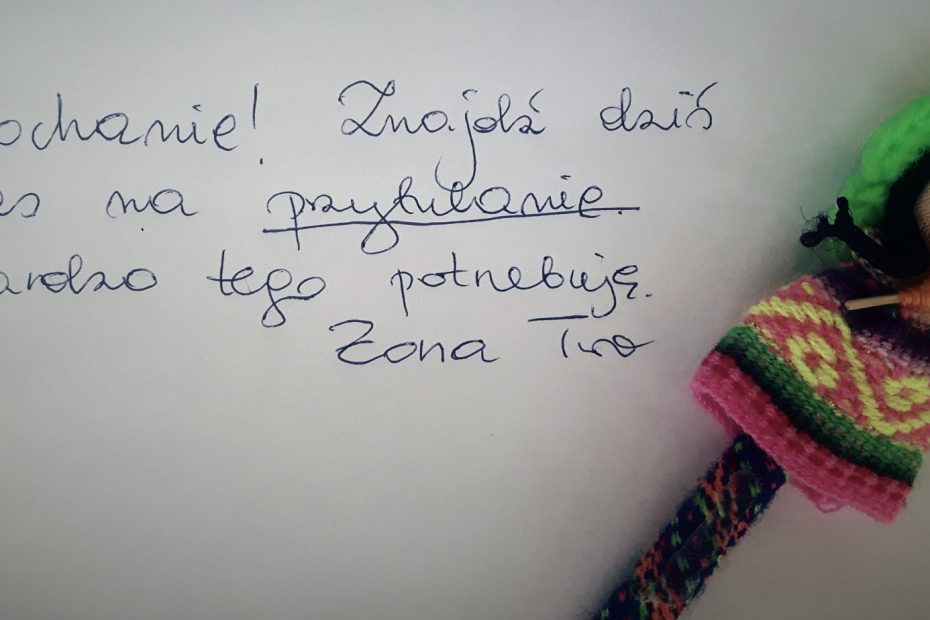 ochanie! Znajdź dziś
es na przytulanie.
ardzo tego potrzebuję.
Żona Twa